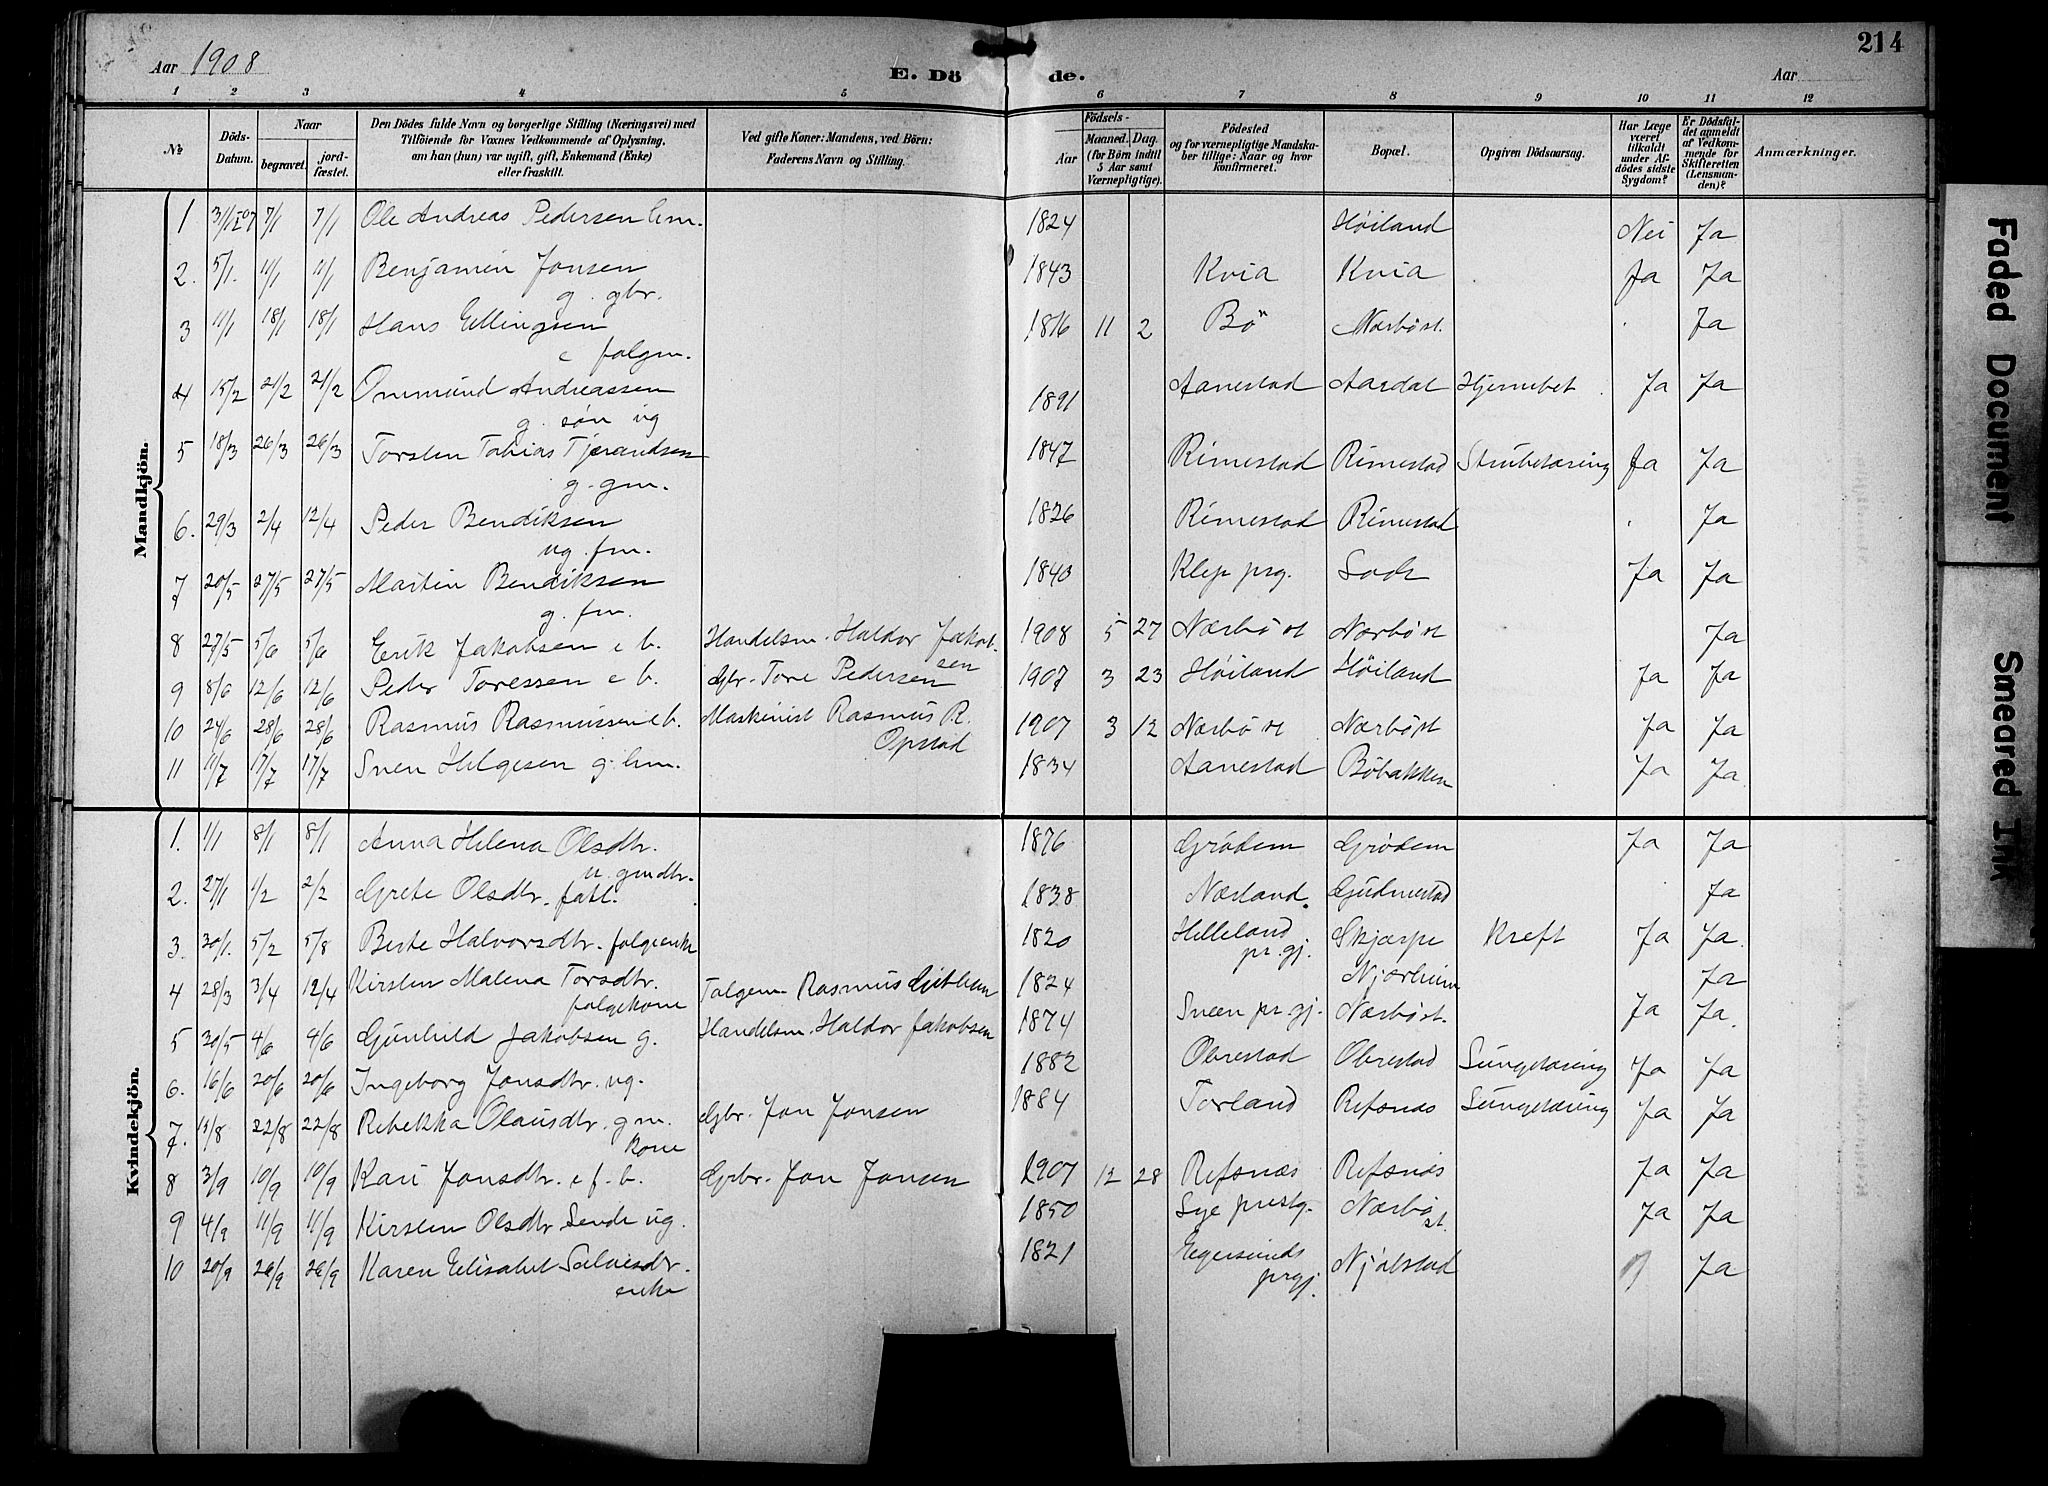 Aar 1908
E. Dö de.
Aar
214
1 2 3 4 5 6 7 8 9 10 11 12
№
Döds-Datum.
Naar
begravet.
jord-fæstet.
Den Dödes fulde Navn og borgerlige Stilling (Næringsvei) med
Tilföiende for Voxnes Vedkommende af Oplysning,
om han (hun) var ugift, gift, Enkemand (Enke)
eller fraskilt.
Ved gifte Koner: Mandens, ved Börn:
Faderens Navn og Stilling.
Födsels-
Aar
Maaned. Dag.
(for Börn indtil
5 Aar samt
Værnepligtige).
Födested
og for værnepligtige Mandska-
ber tillige: Naar og hvor
konfirmeret.
Bopæl.
Opgiven Dödsaarsag.
Har Læge
været
tilkaldt
under Af-
dödes sidste
Sygdom?
Er Dödsfal-
det anmeldt
af Vedkom-
mende for
Skifteretten
(Lensman-
den)?
Anmærkninger.
Mandkjön.
1 31/12 07 7/1 7/1 Ole Andreas Pedersen 1824 Høiland Nei Ja
2. 5/1. 11/1 11/1 Benjamin Jonsen 1843 Kvia Kvia Ja Ja
g. gbr.
3 11/1 18/1 18/1 Hans Ellingsen 1816 11 2 Bö Nærbø st. Ja
e folgm.
4 15/2 21/2 21/2 Ommund Andreassen 1891 Aanestad Aardal Hjernebet. Ja Ja
g. søn ug
5 18/3 26/3 26/3 Torsten Tobias Tjerandsen 1847 Rimestad Rimestad Strubetæring Ja Ja
g. gm.
6. 29/3 2/4 12/4 Peder Bendiksen 1826 Rimestad Rimestad Ja
ug. fm.
7 20/5 27/5 27/5 Martin Bendiksen 1840 Klep prg. Ja Ja
g. fm.
8 27/5 5/6 5/6 Erik Jakobsen e b. Handelsm. Haldor Jakob-
sen 1908 5 27 Nærbø st Nærbø st Ja
9 8/6 12/6 12/6 Peder Toressen e b. Gbr. Tore Pedersen 1907 3 23 Høiland Høiland Ja Ja
10 24/6 28/6 28/6 Rasmus Rasmussen e b. Maskinist Rasmus R.
Opstad 1907 3 12 Nærbø st Nærbø st Ja Ja
11 11/7 17/7 17/7 Sven Helgesen g. 1834 Aanestad Bøbakken Ja Ja
Kvindekjön.
1. 1/1 8/1 8/1 Anna Helena Olsdtr. 1876 Grødem Grødem Ja Ja
u. gmdtr.
2. 27/1 1/2 2/2 Grete Olsdtr. fatt. 1838 Nærland. Gudmestad Ja
3. 30/1. 5/2 5/8 Berte Halvorsdtr. folgeenke 1820 Helleland
pr.gj. Skjærpe Kreft Ja Ja.
4 28/3 3/4 12/4 Kirsten Malena Torsdtr.
folgekone Folgem. Rasmus 1824 Njærheim Ja
5 30/5 4/6 4/6 Gunhild Jakobsen g. Handelsm. Haldor Jakobsen 1874 pr.gj. Nærbø st. Ja Ja.
6. 16/6 20/6 20/6 Ingeborg Jonsdtr. ug. 1882 Obrestad Obrestad Lungetæring Ja Ja
7. 18/8 22/8 22/8 Rebekka Olausdtr. gm.
kone Gbr. Jon Jonsen 1884 Torland Refsnæs Lungetæring Ja Ja
8 3/9 10/9 10/9 Kari Jonsdtr. e f. b. Gbr. Jon Jonsen 1907 12 28 Refsnæs Refsnæs Ja Ja
9 4/9 11/9 11/9 Kirsten Olsdtr Sende ug. 1850 Lye prestg. Nærbø
st. Ja Ja
10 20/9 26/9 26/9 Karen Elisabet Salvesdtr.
enke 1821 Egersunds
prgj. Njølstad Ja
Faded Document
Smeared Ink